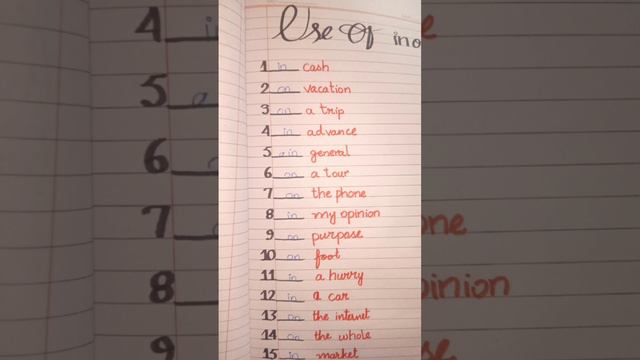 Use Of in o
1 in cash
2 on vacation
3 on a trip
4 in advance
5 in general
6 on a tour
7 on the phone
8 in my opinion
9 on purpase
10 on foot
11 in a hurry
12 in a car
13 on the intenet
14 on the whole
15 in market
4 i
5
6
7
8
9
one
pinion